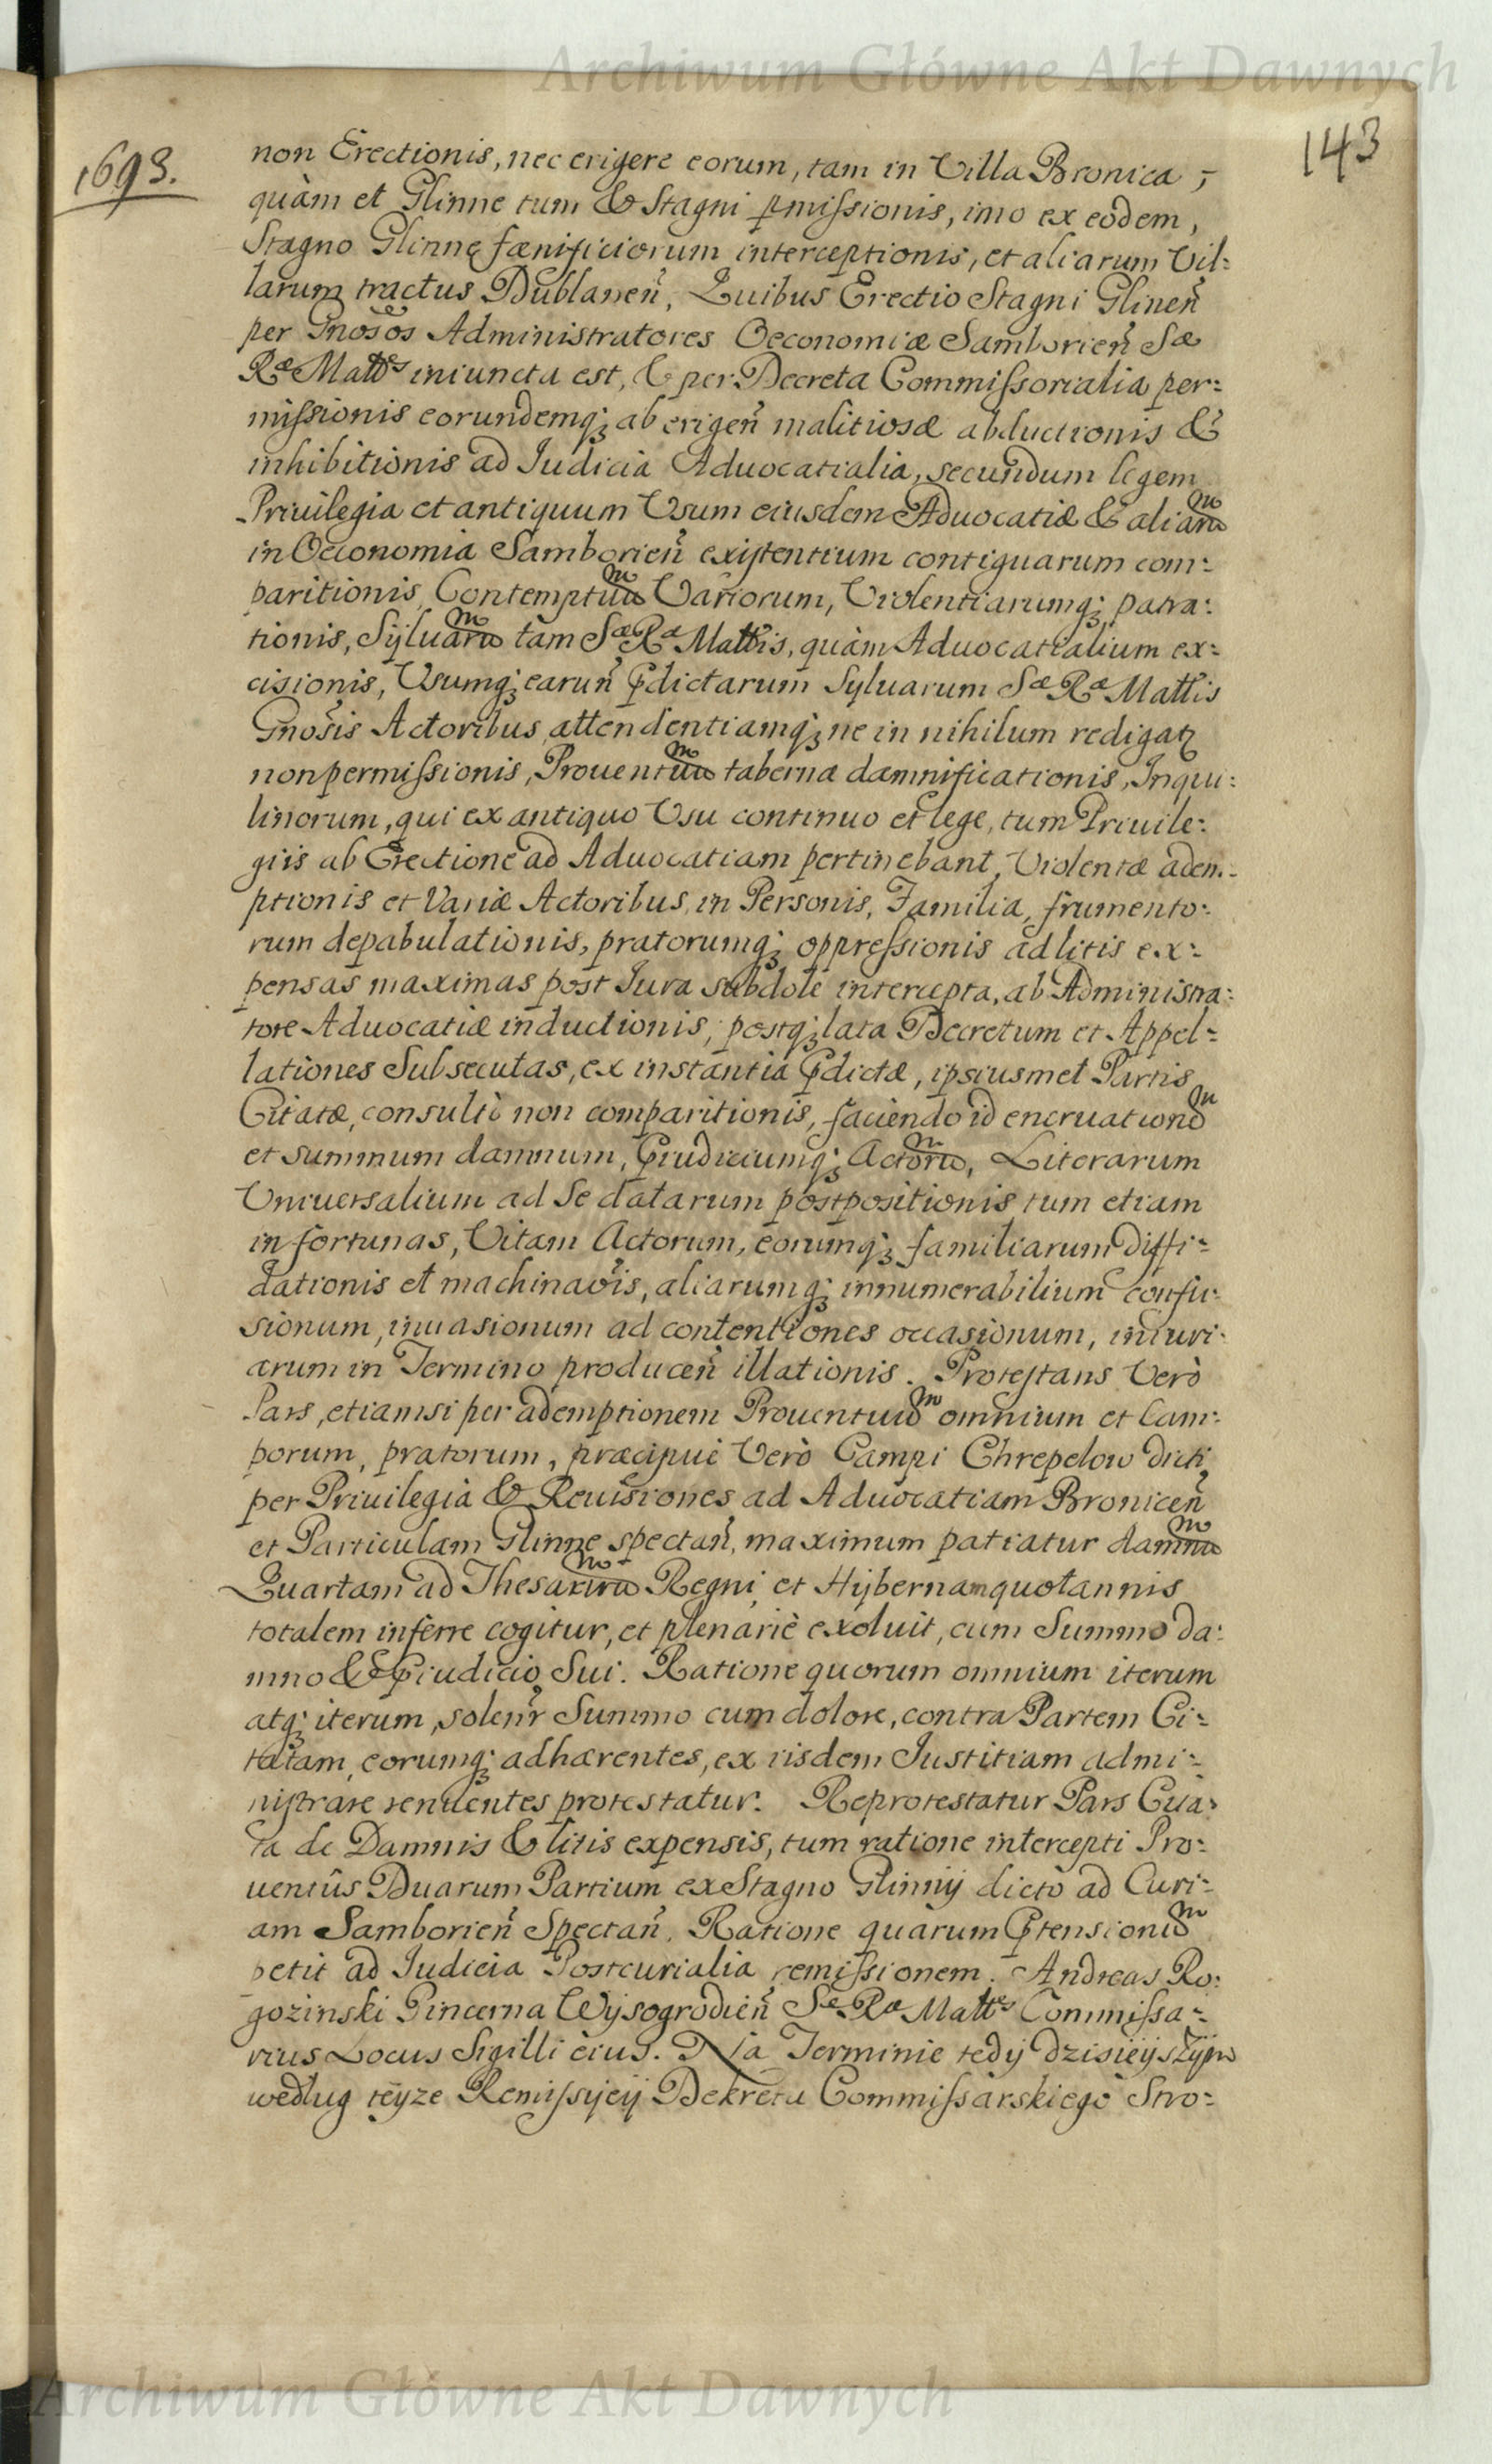 Archiwum Główne Akt Dawnych
143
1693.
non Erectionis, nec erigere eorum, tam in Villa Bronica,
quàm et Glinne tum & Stagni p̱missionis, imo ex eodem,
Stagno Glinnę fænificiorum interceptionis, et aliarum Vil:
larum tractus Dublanen̄, Quibus Erectio Stagni Glinen̄
per Gnōsos Administratores Oeconomiæ Samborien̄ Sæ
Ræ Mattis iniuncta est, & per Decreta Commissorialia per:
missionis eorundemq; ab erigen̄ malitiosæ abductionis &
inhibitionis ad Iudicia Aduocatialia, secundum legem
Priuilegia et antiquum Vsum eiusdem Aduocatiæ & aliarum
in Oeconomia Samborien̄ existentium contiguarum com:
paritionis, Contemptuum Variorum, Violentiarumq; patra:
tionis, Syluarum tam Sæ Ræ Mattis, quàm Aduocatialium ex:
cisionis, Vsumq; earun̄ p̱dictarum Syluarum Sæ Ræ Mattis
Gnōsis Actoribus attendentiamq; ne in nihilum redigatz
non permissionis, Prouentuum taberna damnificationis, Inqui:
linorum, qui ex antiquo Vsu continuo et lege, tum Priuile:
giis ab Erectione ad Aduocatiam pertinebant, Violentæ adem:
ptionis et Variæ Actoribus in Personis, Familia, frumento:
rum depabulationis, pratorumq; oppressionis ad litis ex:
pensas maximas post Iura subdole intercepta, ab Administra:
tore Aduocatiæ inductionis, postq; lata Decretum et Appel:
lationes Subsecutas, ex instantia p̱dictæ, ipsiusmet Partis
Citatæ, consultè non comparitionis, faciendo id eneruationem
et summum damnum, p̱iudiciumq; Actorum, Literarum
Vniuersalium ad Se datarum postpositionis tum etiam
in fortunas, Vitam Actorum, eorumq; familiarum diffi:
dationis et machinaōis, aliarumq; innumerabilium confu:
sionum, inuasionum ad contentiones occasionum, iniuri:
arum in Termino producen̄ illationis. Protestans Verò
Pars, etiamsi per ademptionem Prouentuum omnium et Cam:
porum, pratorum, præcipuè Verò Campi Chrepelow dicti
per Priuilegia & Reuisiones ad Aduocatiam Bronicen̄
et Particulam Glinne spectan̄, maximum patiatur damnum
Quartam ad Thesaurum Regni et Hybernam quotannis
totalem inferre cogitur, et plenariè exoluit, cum Summo da:
mno & p̱iudicio Sui. Ratione quorum omnium iterum
atq; iterum, solenr̄ Summo cum dolore, contra Partem Ci:
tatam, eorumq; adhærentes, ex iisdem Iustitiam admi:
nistrare renuentes protestatur. Reprotestatur Pars Cita:
ta de Damnis & litis expensis, tum ratione intercepti Pro:
uentûs Duarum Partium ex Stagno Glinny dicto ad Curi:
am Samborien̄ Spectan̄. Ratione quarum p̱tensionum
petit ad Iudicia Postcurialia remissionem. Andreas Ro:
gozinski Pincerna Wysogrodien̄ Sæ Ræ Mattis Commissa:
rius Locus Sigilli eius. Na Terminie tedy dzisieyszym
według teyze Remissyey Dekretu Commissarskiego Stro:
Archiwum Główne Akt Dawnych